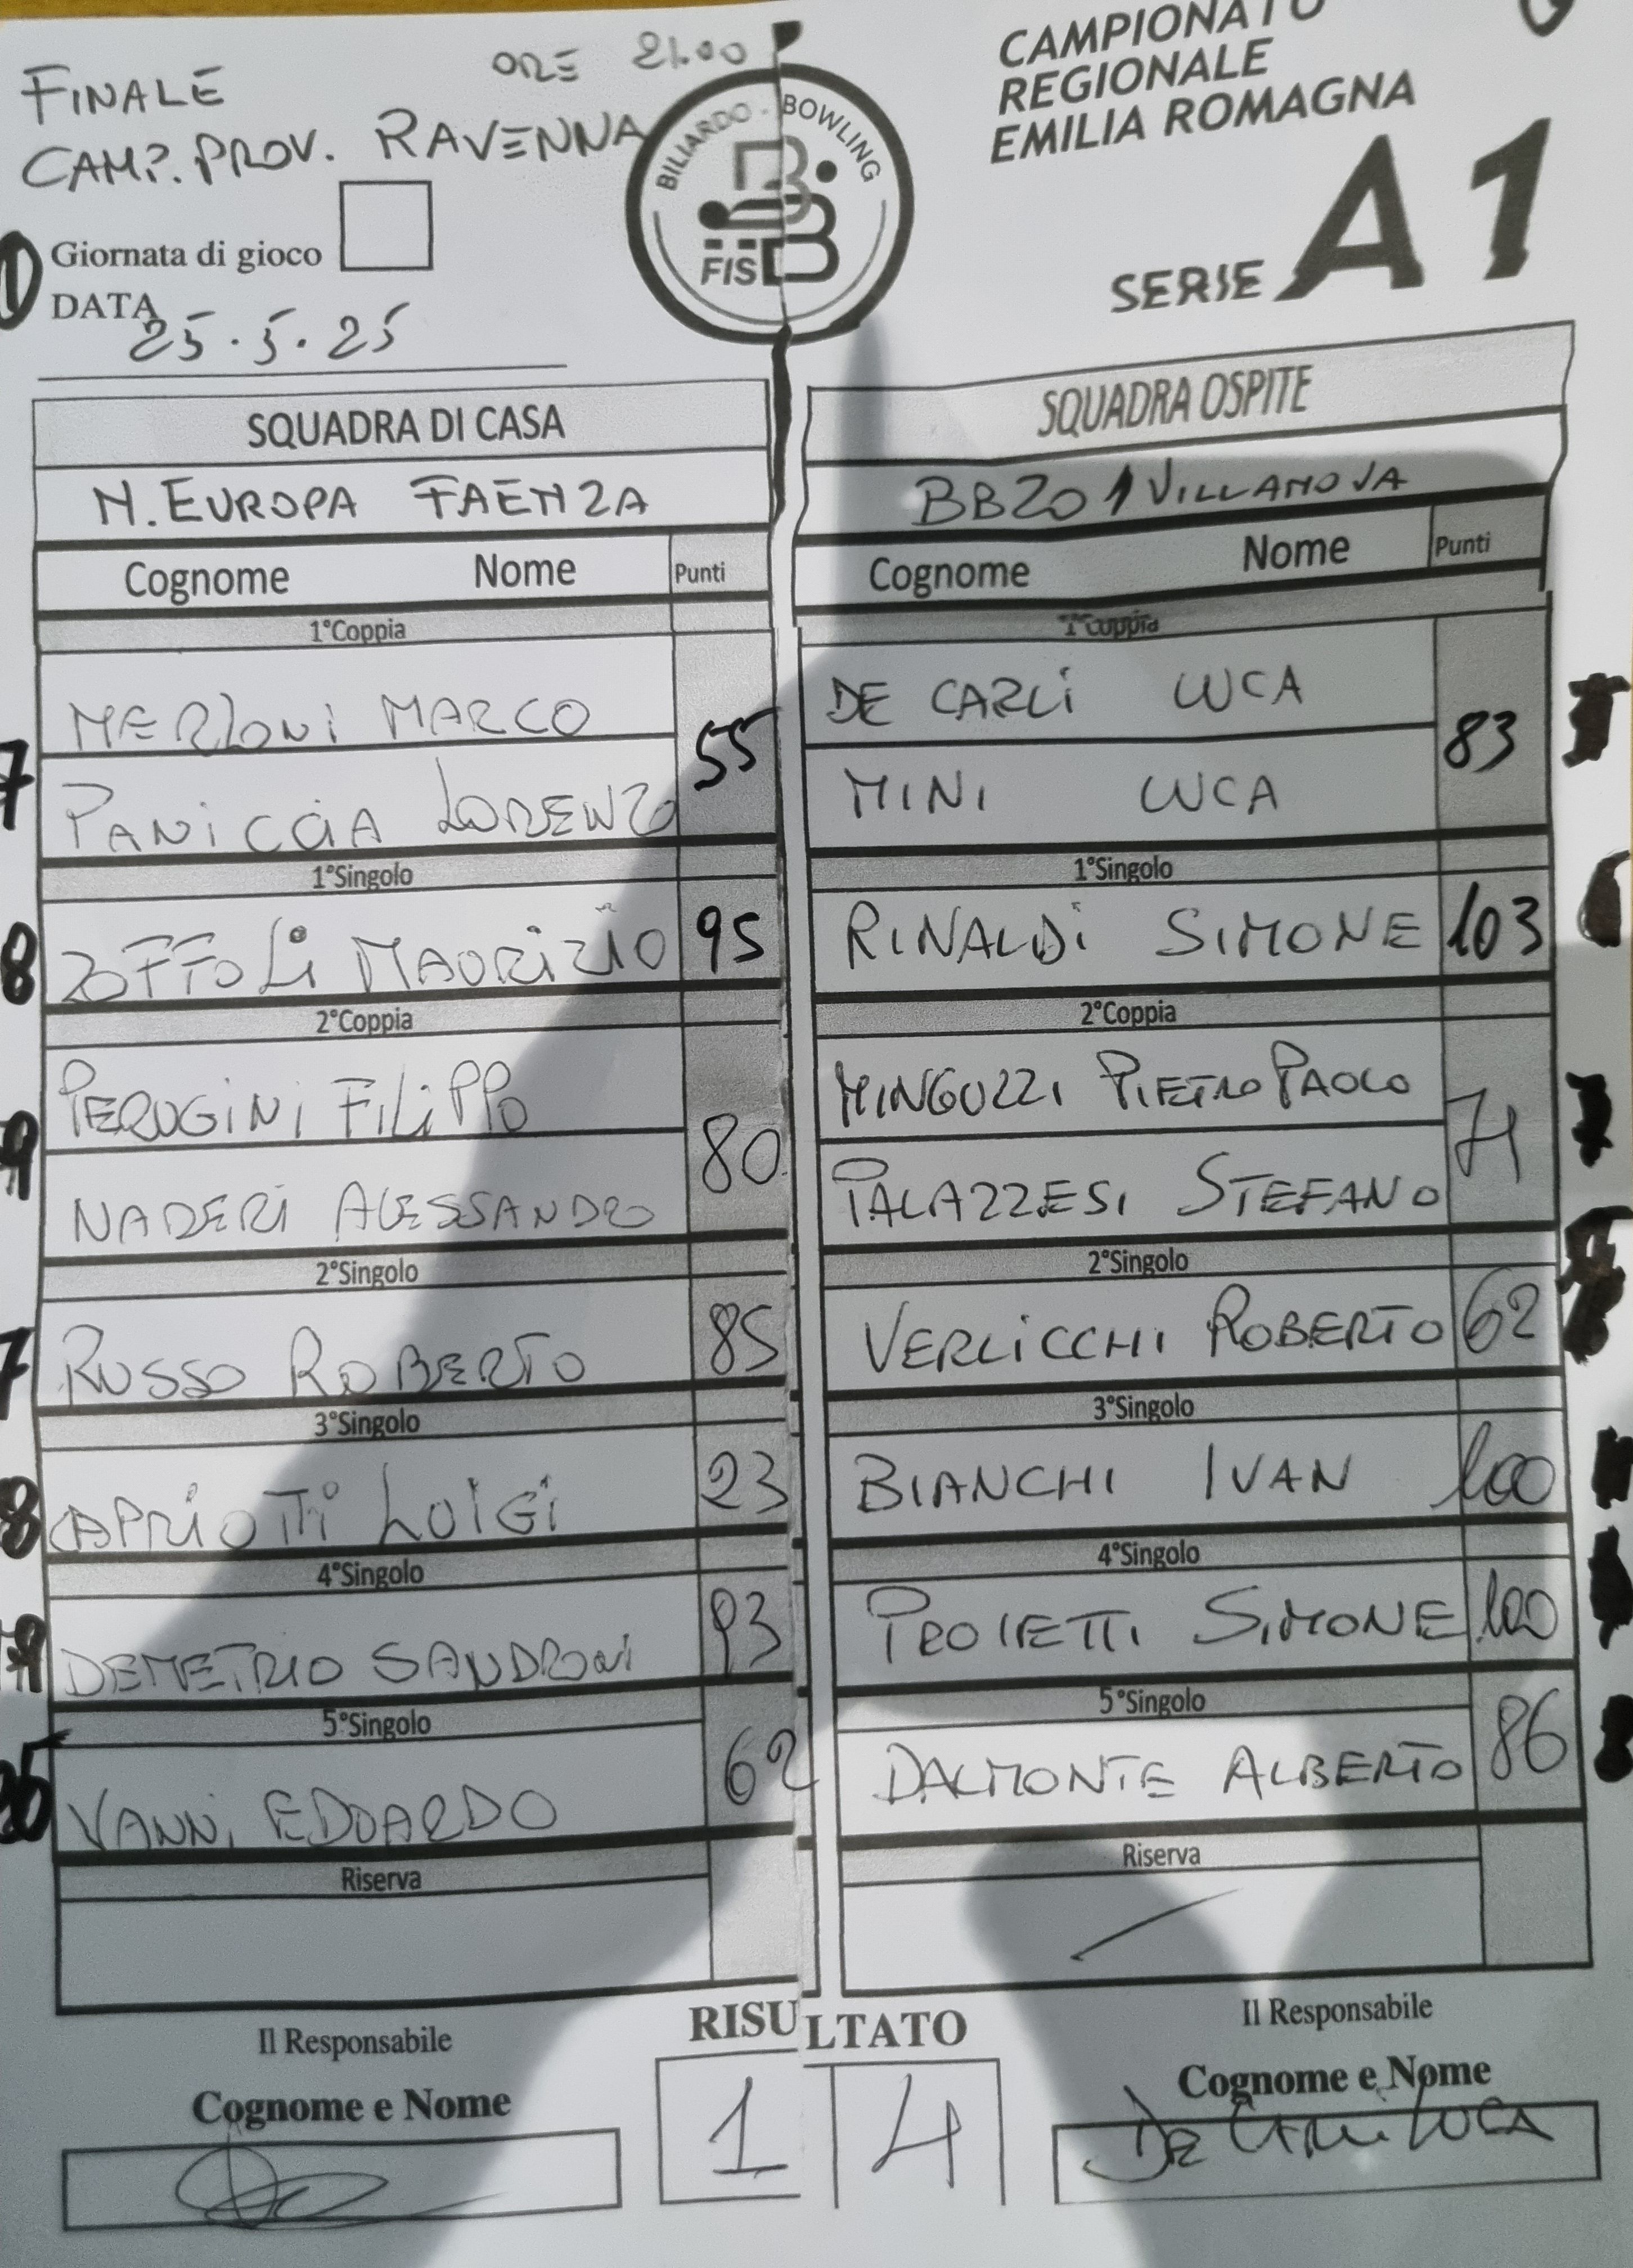 FINALE ORE 21.00
CAMP. PROV. RAVENNA
BILIARDO - BOWLING
FISBB
CAMPIONATO
REGIONALE
EMILIA ROMAGNA
SERIE A1
Giornata di gioco
DATA
25.5.25
SQUADRA DI CASA
N. EUROPA FAENZA
Cognome Nome Punti
1°Coppia
MERLONI MARCO
55
PANICCIA LORENZO
1°Singolo
ZOFFOLI MAURIZIO 95
2°Coppia
PERUGINI FILIPPO
80
NADERI ALESSANDRO
2°Singolo
RUSSO ROBERTO 85
3°Singolo
CAPRIOTTI LUIGI 23
4°Singolo
DEMETRIO SANDRONI 93
5°Singolo
VANNI EDOARDO 62
Riserva
SQUADRA OSPITE
BBZO 1 VILLANOVA
Cognome Nome Punti
1°Coppia
DE CARLI LUCA
83
MINI LUCA
1°Singolo
RINALDI SIMONE 103
2°Coppia
MINGUZZI PIETRO PAOLO
71
PALAZZESI STEFANO
2°Singolo
VERLICCHI ROBERTO 62
3°Singolo
BIANCHI IVAN 100
4°Singolo
PROIETTI SIMONE 100
5°Singolo
DALMONTE ALBERTO 86
Riserva
RISULTATO
1 4
Il Responsabile
Cognome e Nome
Il Responsabile
Cognome e Nome
DE CARLI LUCA